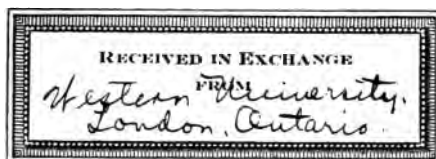 RECEIVED IN EXCHANGE
FROM
Western University.
London, Ontario.